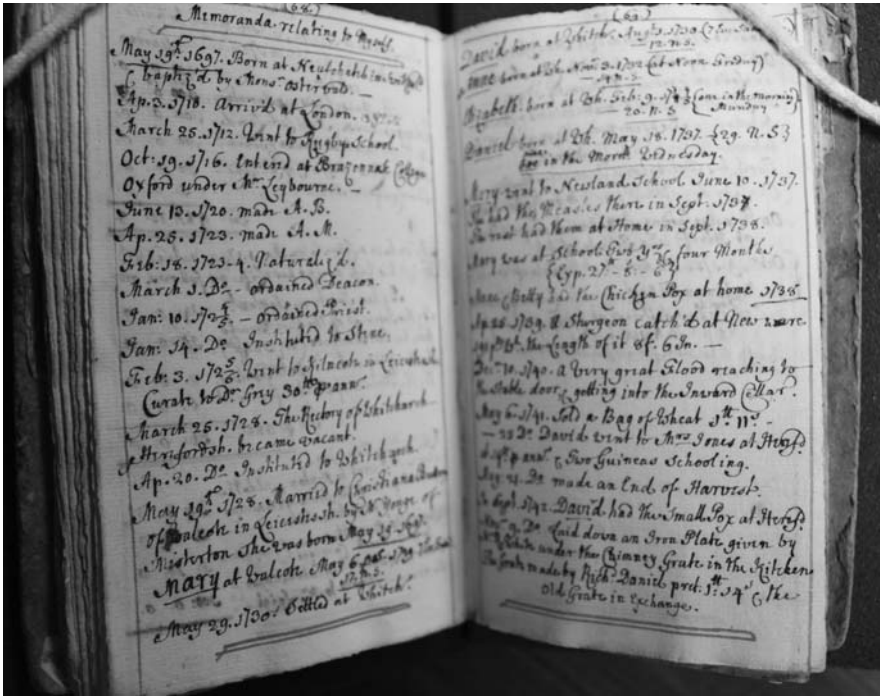 (68.)
Memoranda relating to Myself.
May 19th 1697. Born at Neufchatel in
& baptiz'd by Monsr Ostervald. —
Ap. 3. 1710. Arriv'd at London.
March 25. 1712. Went to Rugby School.
Oct: 19. 1716. Enter'd at Brazennak College
Oxford under Mr Leybourne. —
June 13. 1720. made A.B.
Ap. 25. 1723. made A.M.
Feb: 18. 1723-4. Naturaliz'd.
March 1. Do — ordained Deacon.
Jan: 10. 172 — ordained Priest.
Jan: 14. Do Instituted to
Feb: 3. 172 5/6. Went to Kilncote in Leicestersh.
Curate to Dr Grey 30ll p ann:
March 25. 1728. The Rectory of Whitchurch
Herefordsh. became vacant.
Ap. 20. Do Instituted to Whitchurch.
May 19th 1728. Married to Christiana
of Walcote in Leicestersh. by Mr of
Misterton She was born May 1697.
Mary at Walcote May 6. 1729.
17. N.S.
May 29. 1730. Settled at Whitch:
(69)
David born at Whitch. Augt 1. 1730
12. N.S.
Anne born at Wh. Novr 3. 1732 (at Noon Fryday)
14 N.S.
Elizabeth born at Wh. Feb: 9. 173 (One in the morning)
20. N.S. Munday
Daniel born at Wh. May 18. 1737. {29. N.S}
in the Morn Wednesday.
Mary went to Newland School June 10. 1737.
She had the Measles there in Sept. 1737.
The rest had them at Home in Sept. 1738.
Mary was at School Two Yrs & four Months
{Exp. 27ll - 8 - 6}
Anne & Betty had the Chicken Pox at home 1738.
Ap. 26. 1739. A Sturgeon catch'd at New weare
the Length of it 8f. 6 In. —
Decr 10. 1740. A very great Flood reaching to
the Stable door & getting into the Inward Cellar.
May 6. 1741. Sold a Bag of Wheat 1ll 11s —
— 25 Do David went to Mrs Jones at Heref'd
at p ann: & Two Guineas Schooling.
Do made an End of Harvest.
Sept. 1742. David had the Small Pox at Heref'd
Do Laid down an Iron Plate given by
under the Chimney Grate in the Kitchen
The made by Richd Daniel pret: 1ll 14s & the
Old Grate in Exchange.